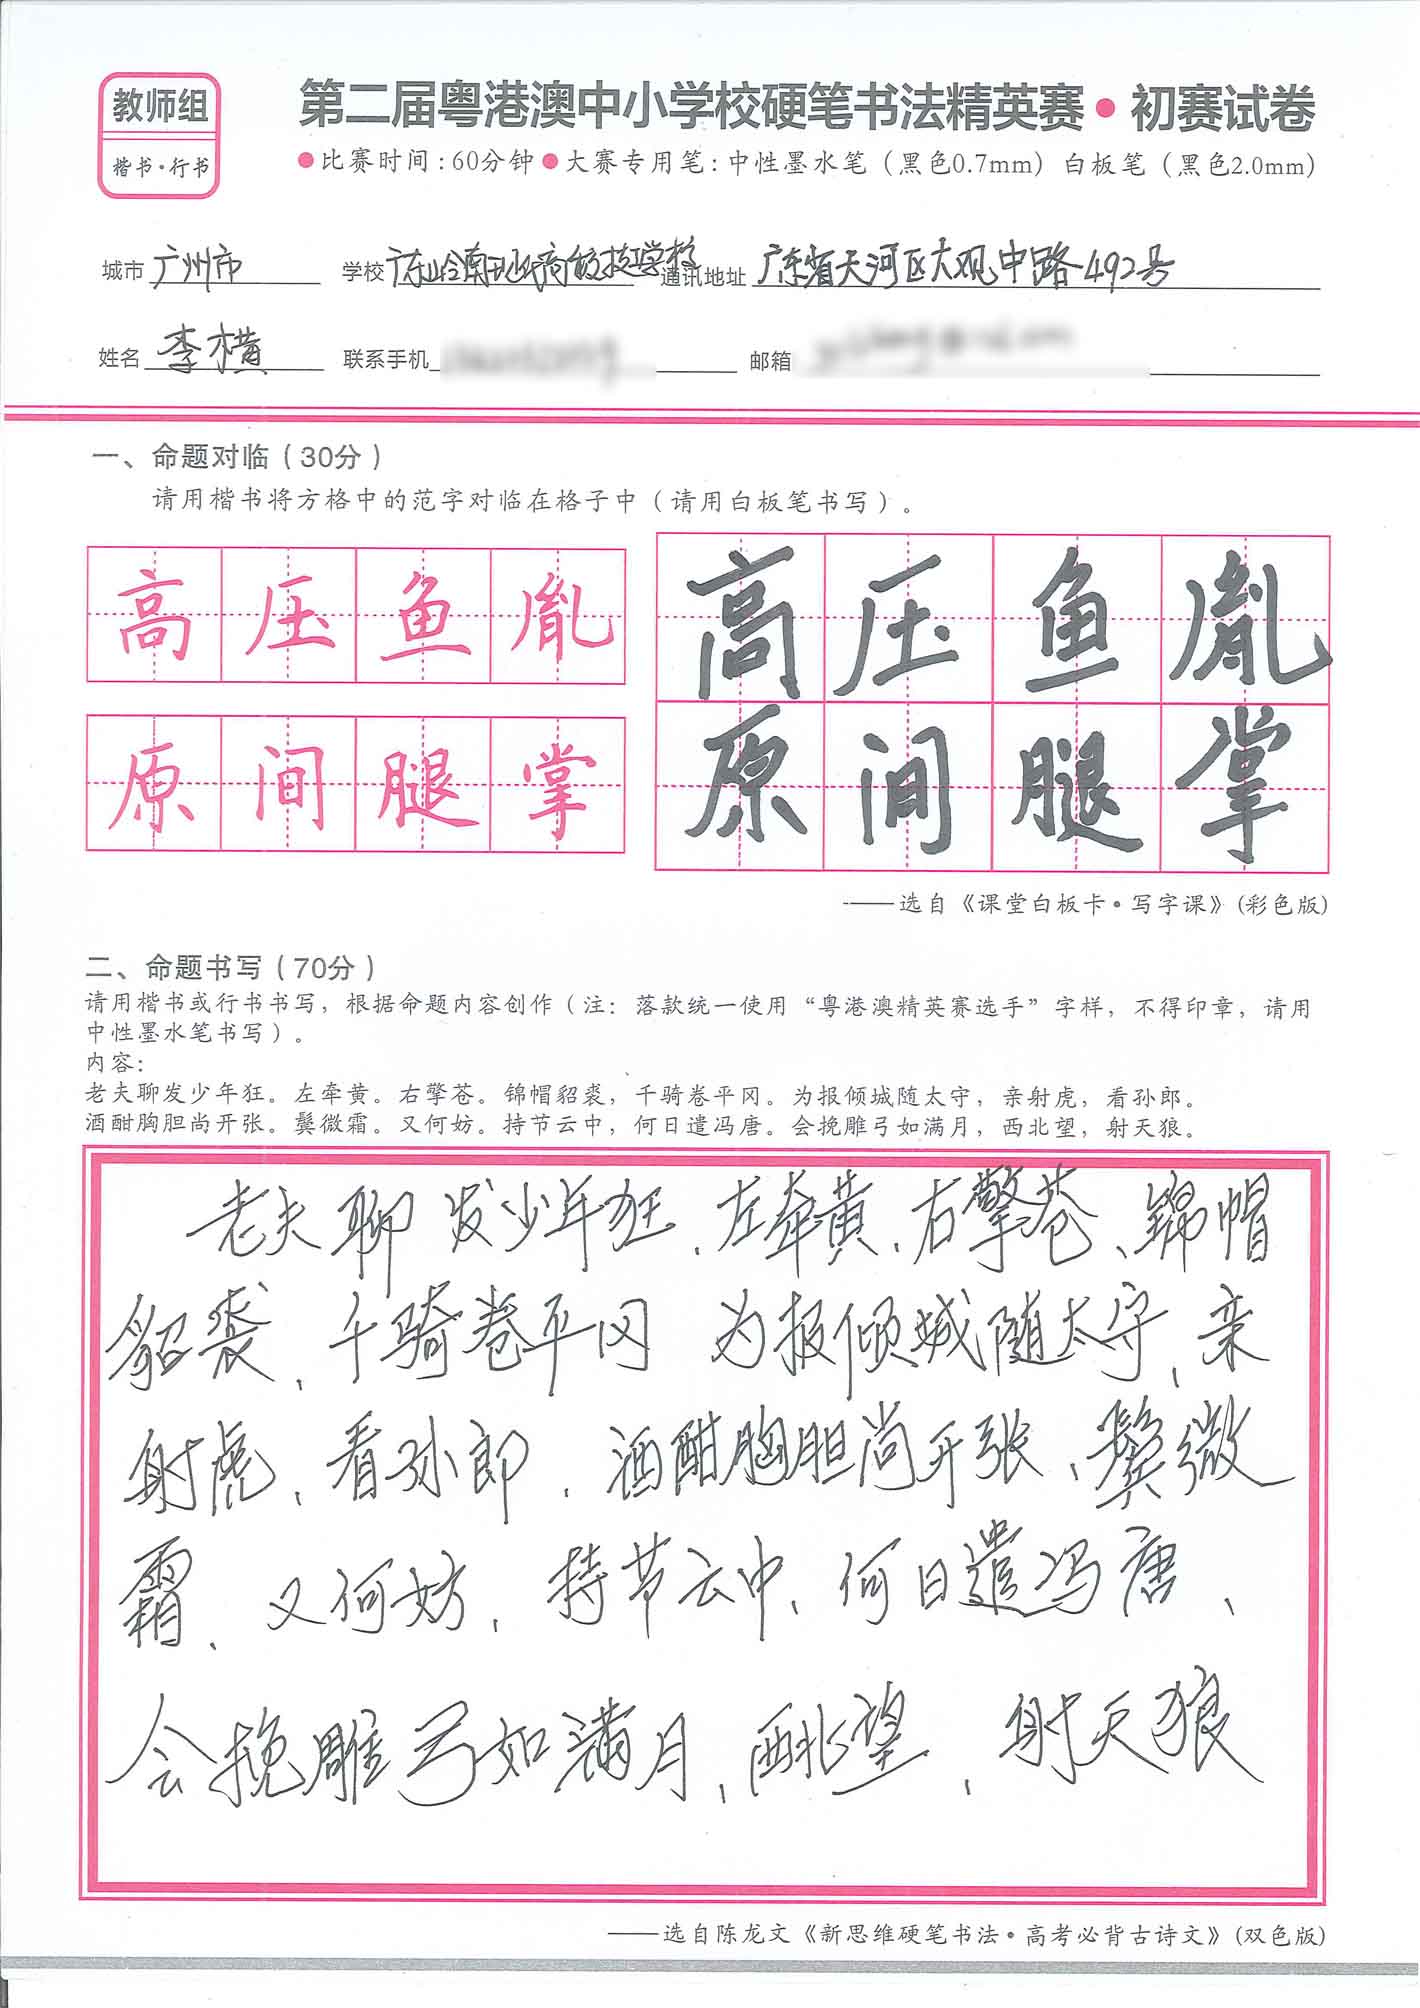 教师组
楷书·行书
第二届粤港澳中小学校硬笔书法精英赛·初赛试卷
●比赛时间:60分钟●大赛专用笔:中性墨水笔(黑色0.7mm)白板笔(黑色2.0mm)
城市 广州市 学校 广东岭南现代高级技工学校 通讯地址 广东省天河区大观中路492号
姓名 李横 联系手机 邮箱
一、命题对临(30分)
请用楷书将方格中的范字对临在格子中(请用白板笔书写)。
高压鱼胤 高压鱼胤
原间腿掌 原间腿掌
——选自《课堂白板卡·写字课》(彩色版)
二、命题书写(70分)
请用楷书或行书书写,根据命题内容创作(注:落款统一使用“粤港澳精英赛选手”字样,不得印章,请用
中性墨水笔书写)。
内容:
老夫聊发少年狂。左牵黄。右擎苍。锦帽貂裘,千骑卷平冈。为报倾城随太守,亲射虎,看孙郎。
酒酣胸胆尚开张。鬓微霜。又何妨。持节云中,何日遣冯唐。会挽雕弓如满月,西北望,射天狼。
老夫聊发少年狂、左牵黄、右擎苍、锦帽
貂裘、千骑卷平冈 为报倾城随太守、亲
射虎、看孙郎、酒酣胸胆尚开张、鬓微
霜、又何妨、持节云中、何日遣冯唐、
会挽雕弓如满月、西北望、射天狼
——选自陈龙文《新思维硬笔书法·高考必背古诗文》(双色版)